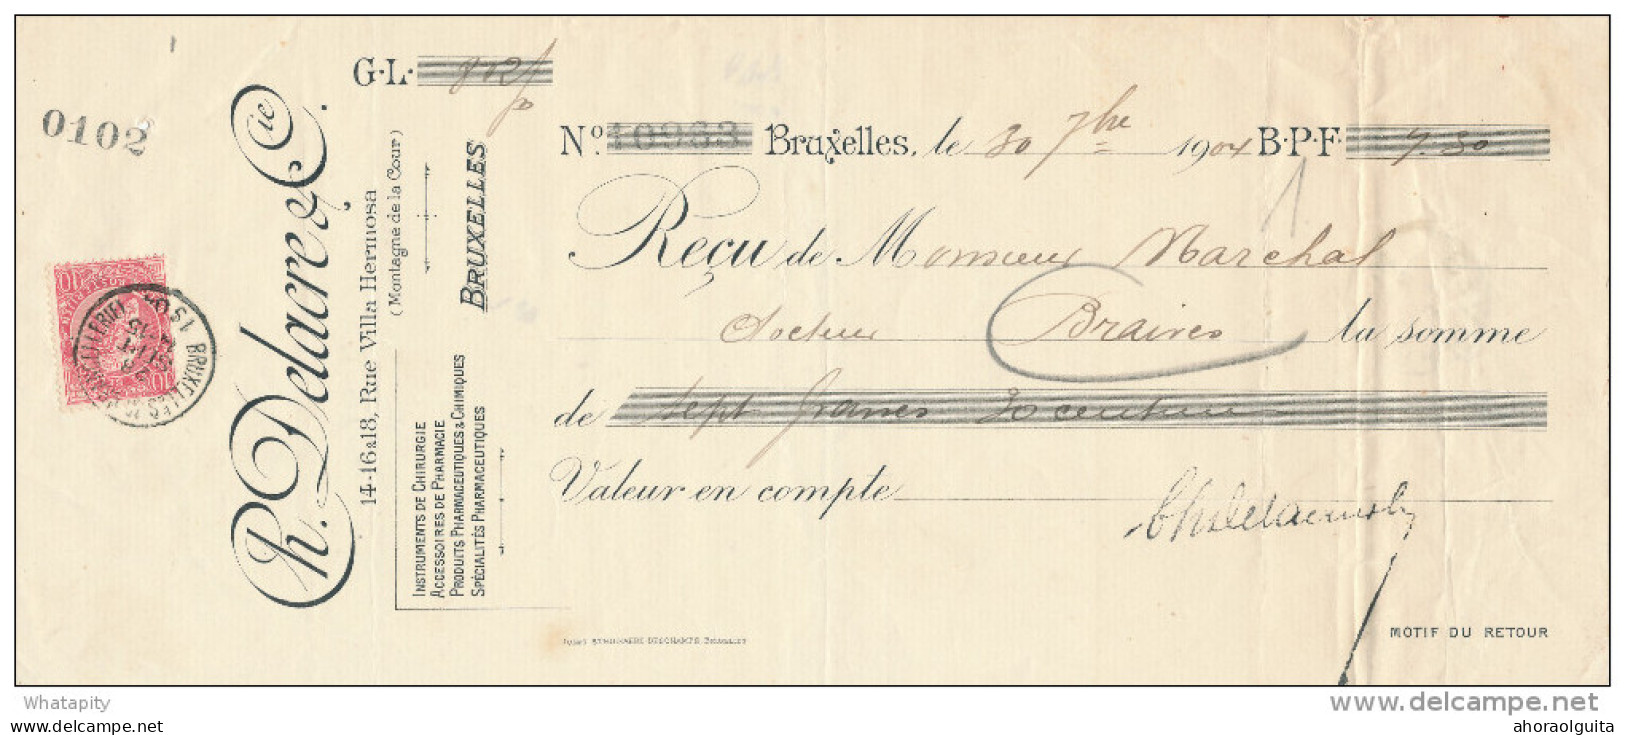 0102
Ch. Delacre & Cie.
14-16 à 18, Rue Villa Hermosa
(Montagne de la Cour)
BRUXELLES
INSTRUMENTS DE CHIRURGIE
ACCESSOIRES DE PHARMACIE
PRODUITS PHARMACEUTIQUES & CHIMIQUES
SPÉCIALITÉS PHARMACEUTIQUES
G.L.
No. 10963 Bruxelles, le 30 7bre 1904 B.P.F. 7.30
Reçu de Monsieur Marchal
docteur Braives la somme
de sept francs 30 centimes
Valeur en compte
MOTIF DU RETOUR
10
10
BRUXELLES
Whatapity
www.delcampe.net
ahoraolguita